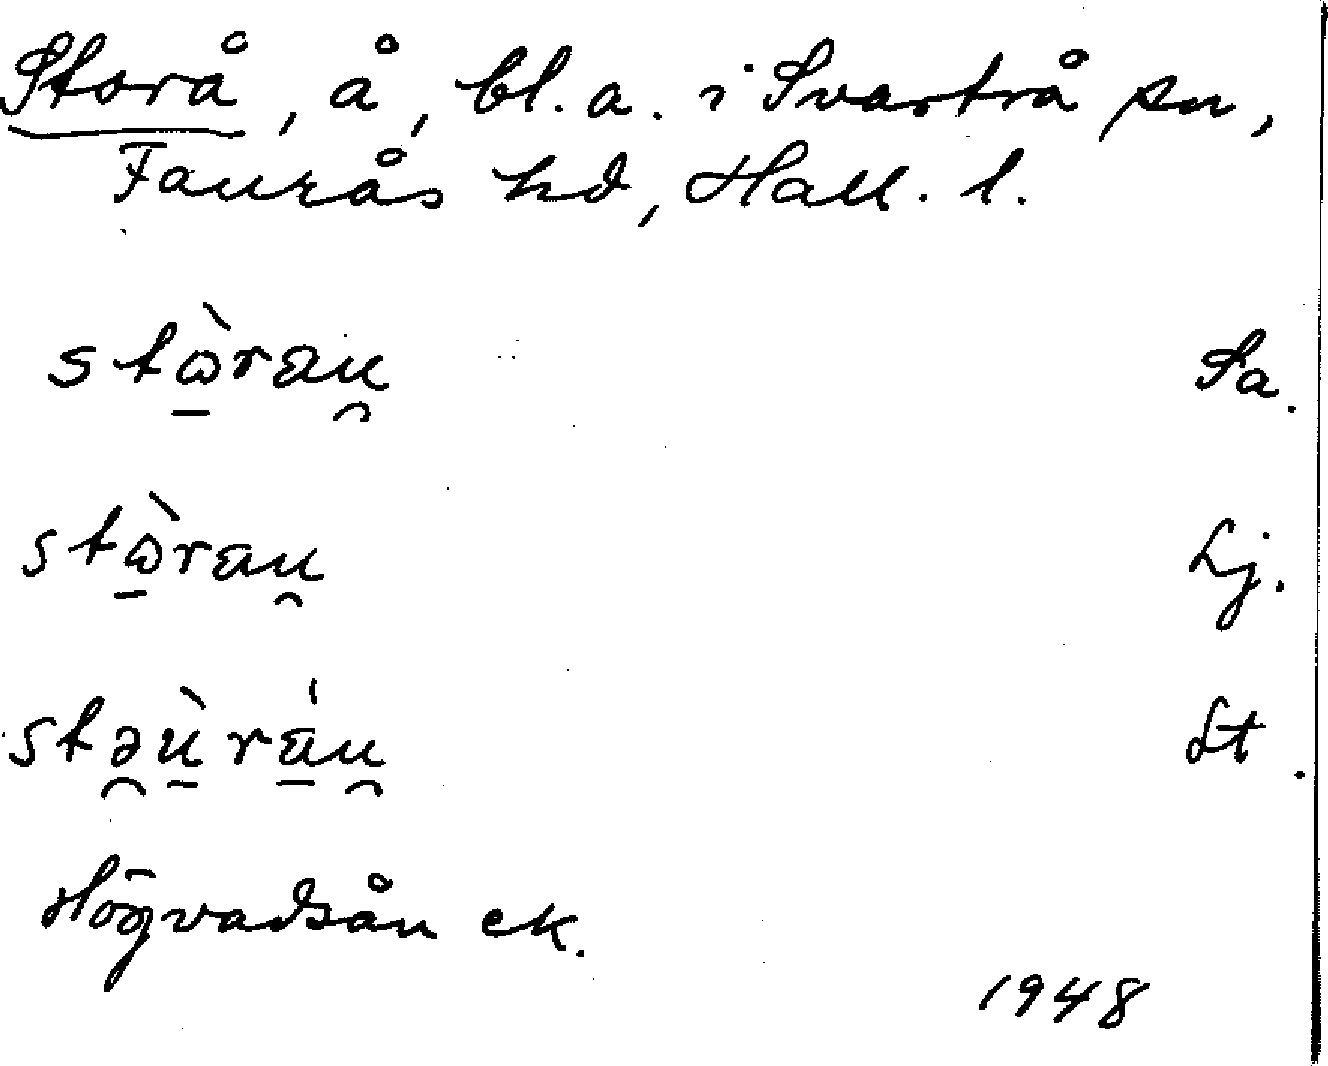 Storå, å, bl. a. i Svartrå sn,
Faurås hd, Hall. l.
stὼ̠rau̯ Sa.
stὼ̠rau̯ Lj.
stə̯ù̠rá̠u̯ St.
Högvadsån ek.
1948